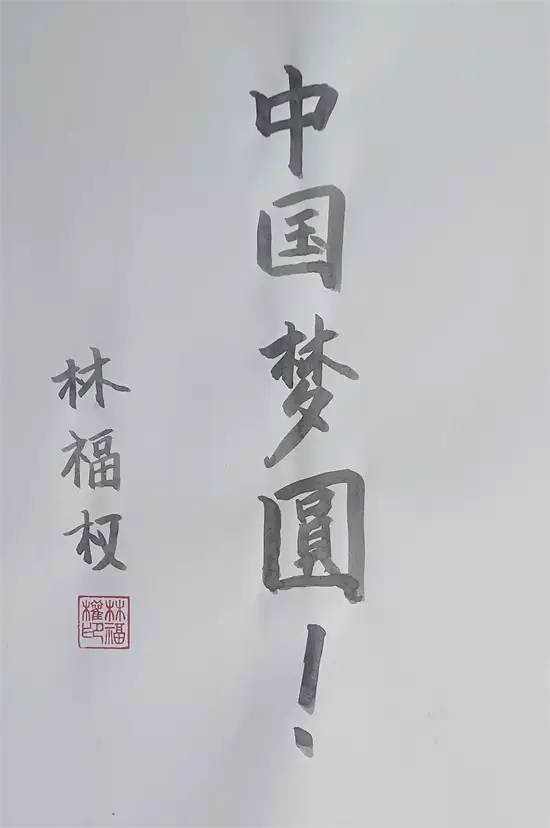 中国梦圆！
林福权
林福權印